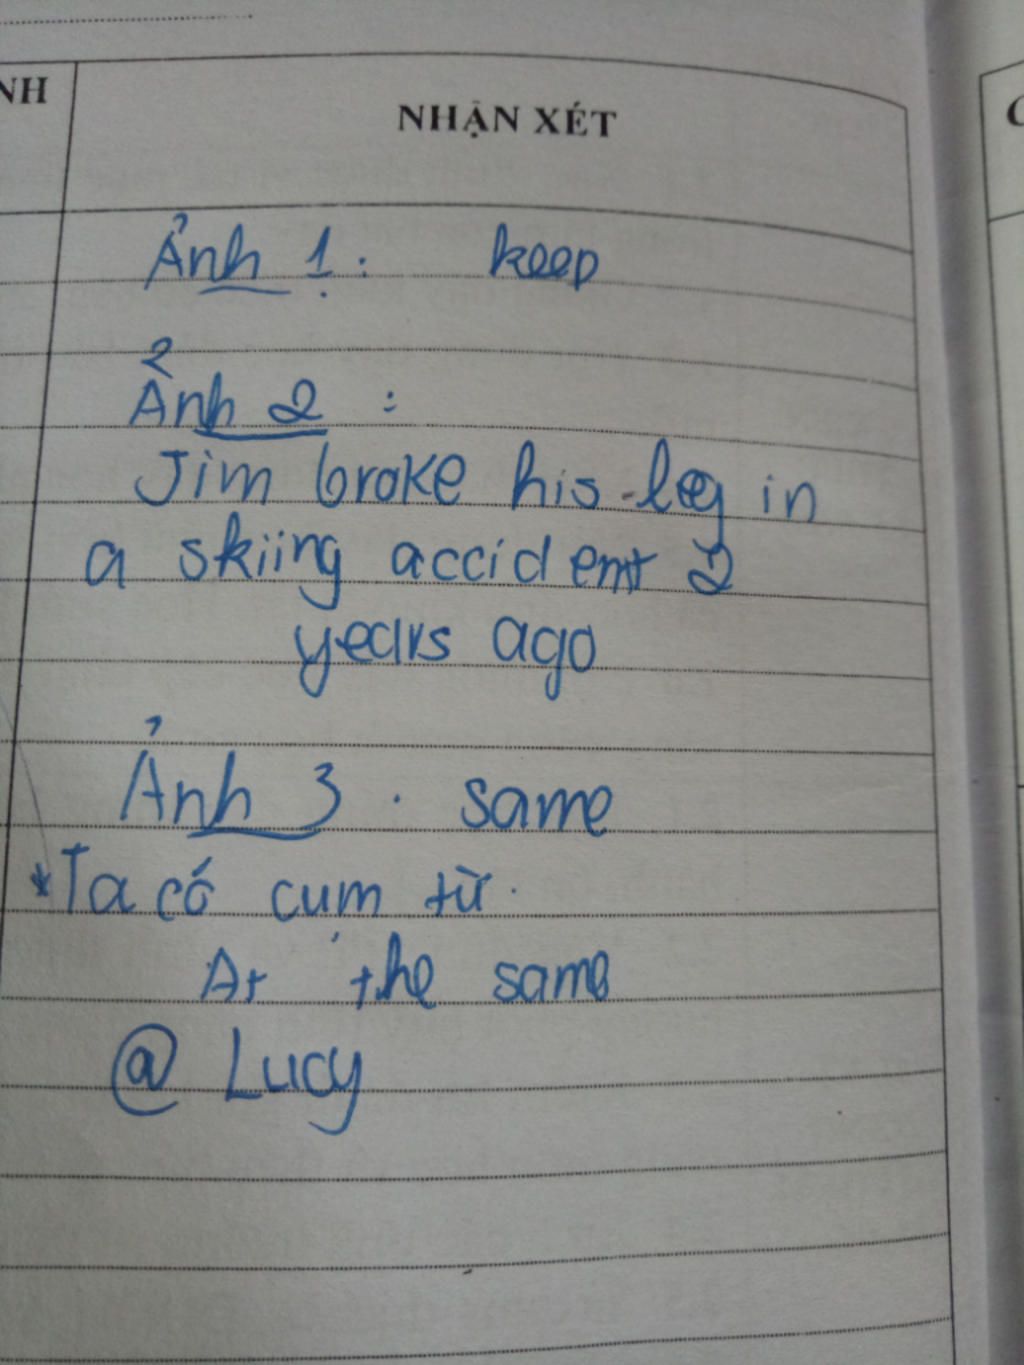 NH
NHẬN XÉT
C
Ảnh 1: keep
Ảnh 2 :
Jim broke his leg in
a skiing accident 2
years ago
Ảnh 3. same
*Ta có cụm từ.
At the same
@ Lucy